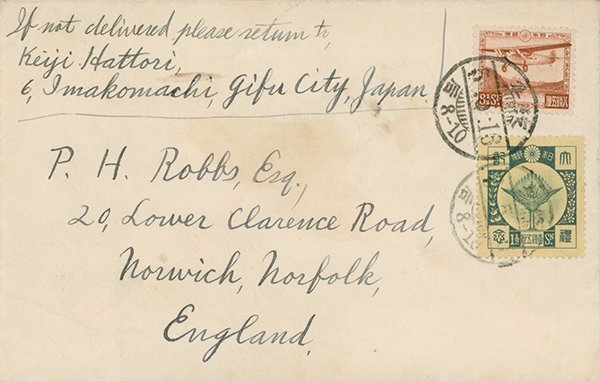 If not delivered please return to,
Keiji Hattori,
6, Imakomachi, Gifu City, Japan.
P. H. Robbs, Esq.,
20, Lower Clarence Road,
Norwich, Norfolk,
England.
8-10
大
禮
1½
Sn.
8-10